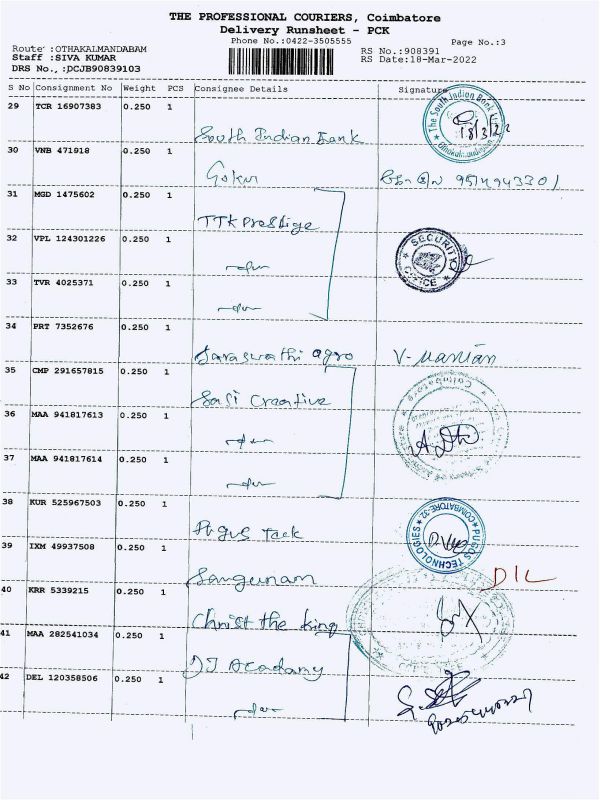 THE PROFESSIONAL COURIERS, Coimbatore
Delivery Runsheet - PCK
Phone No.:0422-3505555
Page No.:3
Route :OTHAKALMANDABAM
RS No.:908391
Staff :SIVA KUMAR
RS Date:18-Mar-2022
DRS No.,:DCJB90839103
S No Consignment No Weight PCS Consignee Details Signature
29 TCR 16907383 0.250 1
South Indian Bank
The South Indian Bank
18/3/22
30 VNB 471918 0.250 1
Gokul
31 MGD 1475602 0.250 1
TTK Prestige
32 VPL 124301226 0.250 1
SECURITY OFFICE
33 TVR 4025371 0.250 1
34 PRT 7352676 0.250 1
Saraswathi agro V-Manian
35 CMP 291657815 0.250 1
Sasi Creative
Coimbatore
36 MAA 941817613 0.250 1
37 MAA 941817614 0.250 1
38 KUR 525967503 0.250 1
Pugus Tack
PUGOS TECHNOLOGIES COIMBATORE-32
39 IXM 49937508 0.250 1
Sangunam DIL
40 KRR 5339215 0.250 1
Christ the king
41 MAA 282541034 0.250 1
DJ Academy
42 DEL 120358506 0.250 1